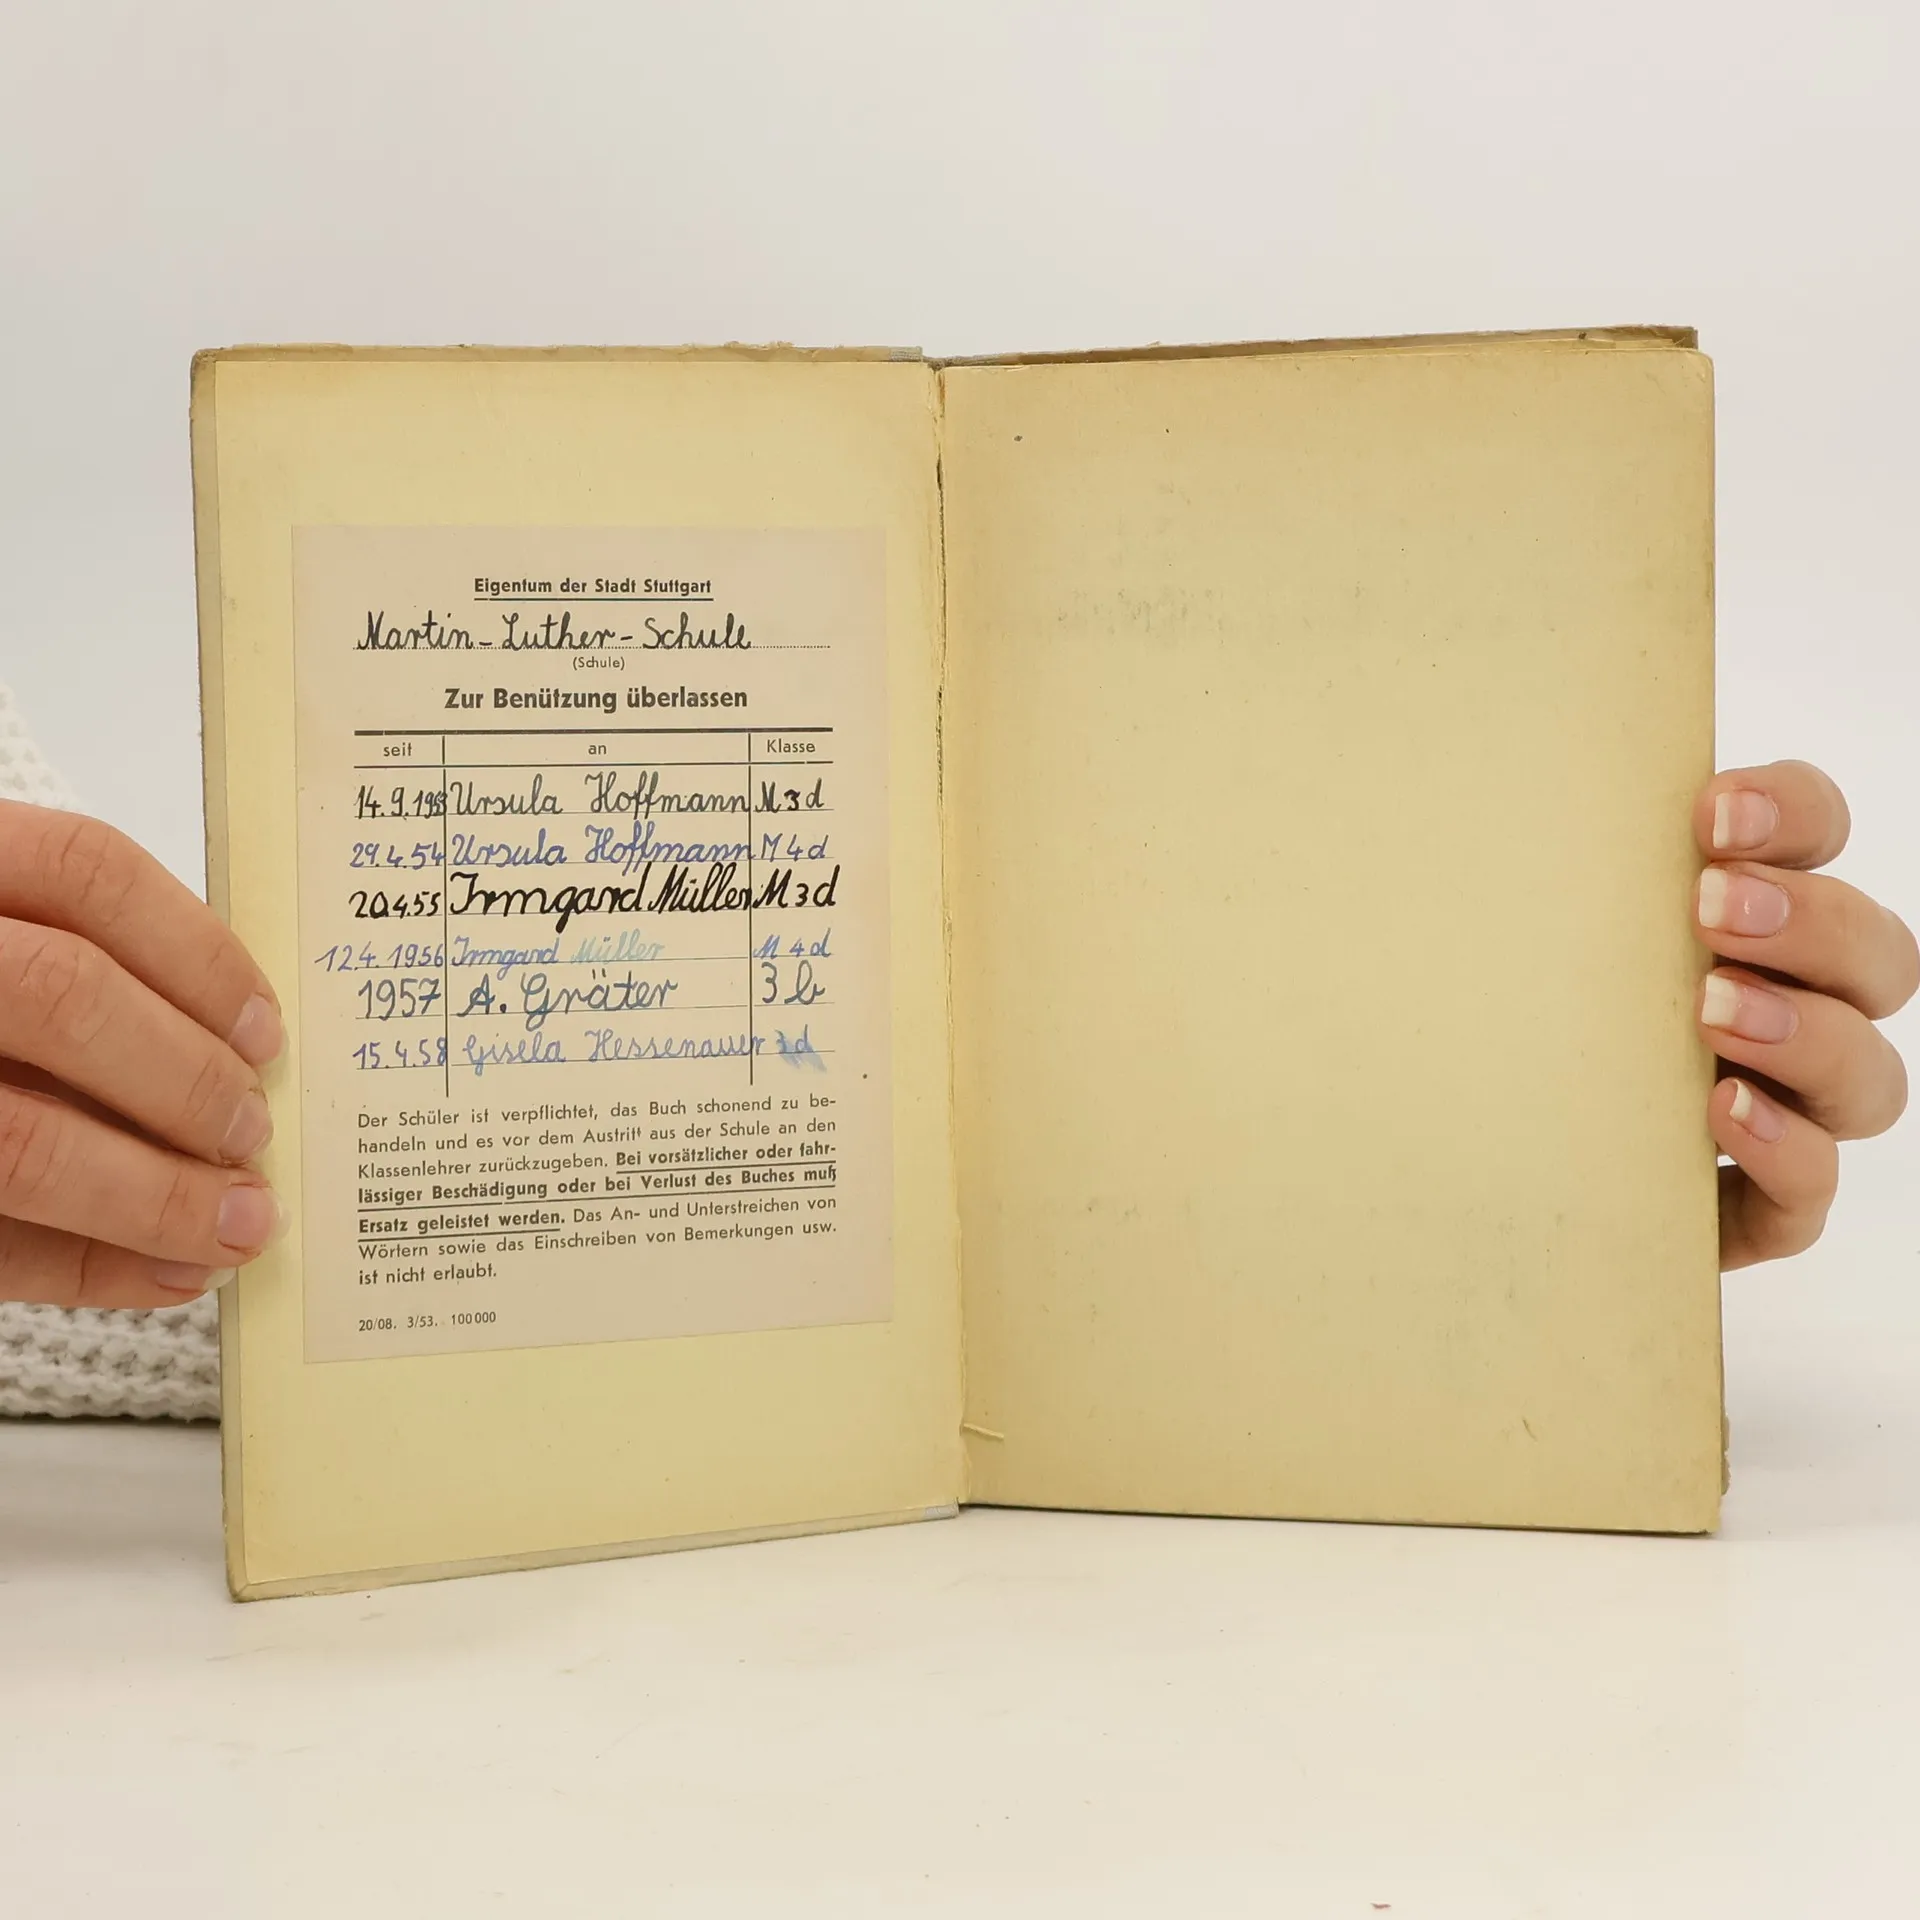 Eigentum der Stadt Stuttgart
Martin-Luther-Schule
(Schule)
Zur Benützung überlassen
seit an Klasse
14.9.1953 Ursula Hoffmann M 3 d
29.4.54 Ursula Hoffmann M 4 d
20.4.55 Irmgard Müller M 3 d
12.4.1956 Irmgard Müller M 4 d
1957 A. Gräter 3 b
15.4.58 Gisela Hessenauer 3 d
Der Schüler ist verpflichtet, das Buch schonend zu be-
handeln und es vor dem Austritt aus der Schule an den
Klassenlehrer zurückzugeben. Bei vorsätzlicher oder fahr-
lässiger Beschädigung oder bei Verlust des Buches muß
Ersatz geleistet werden. Das An- und Unterstreichen von
Wörtern sowie das Einschreiben von Bemerkungen usw.
ist nicht erlaubt.
20/08. 3/53. 100 000